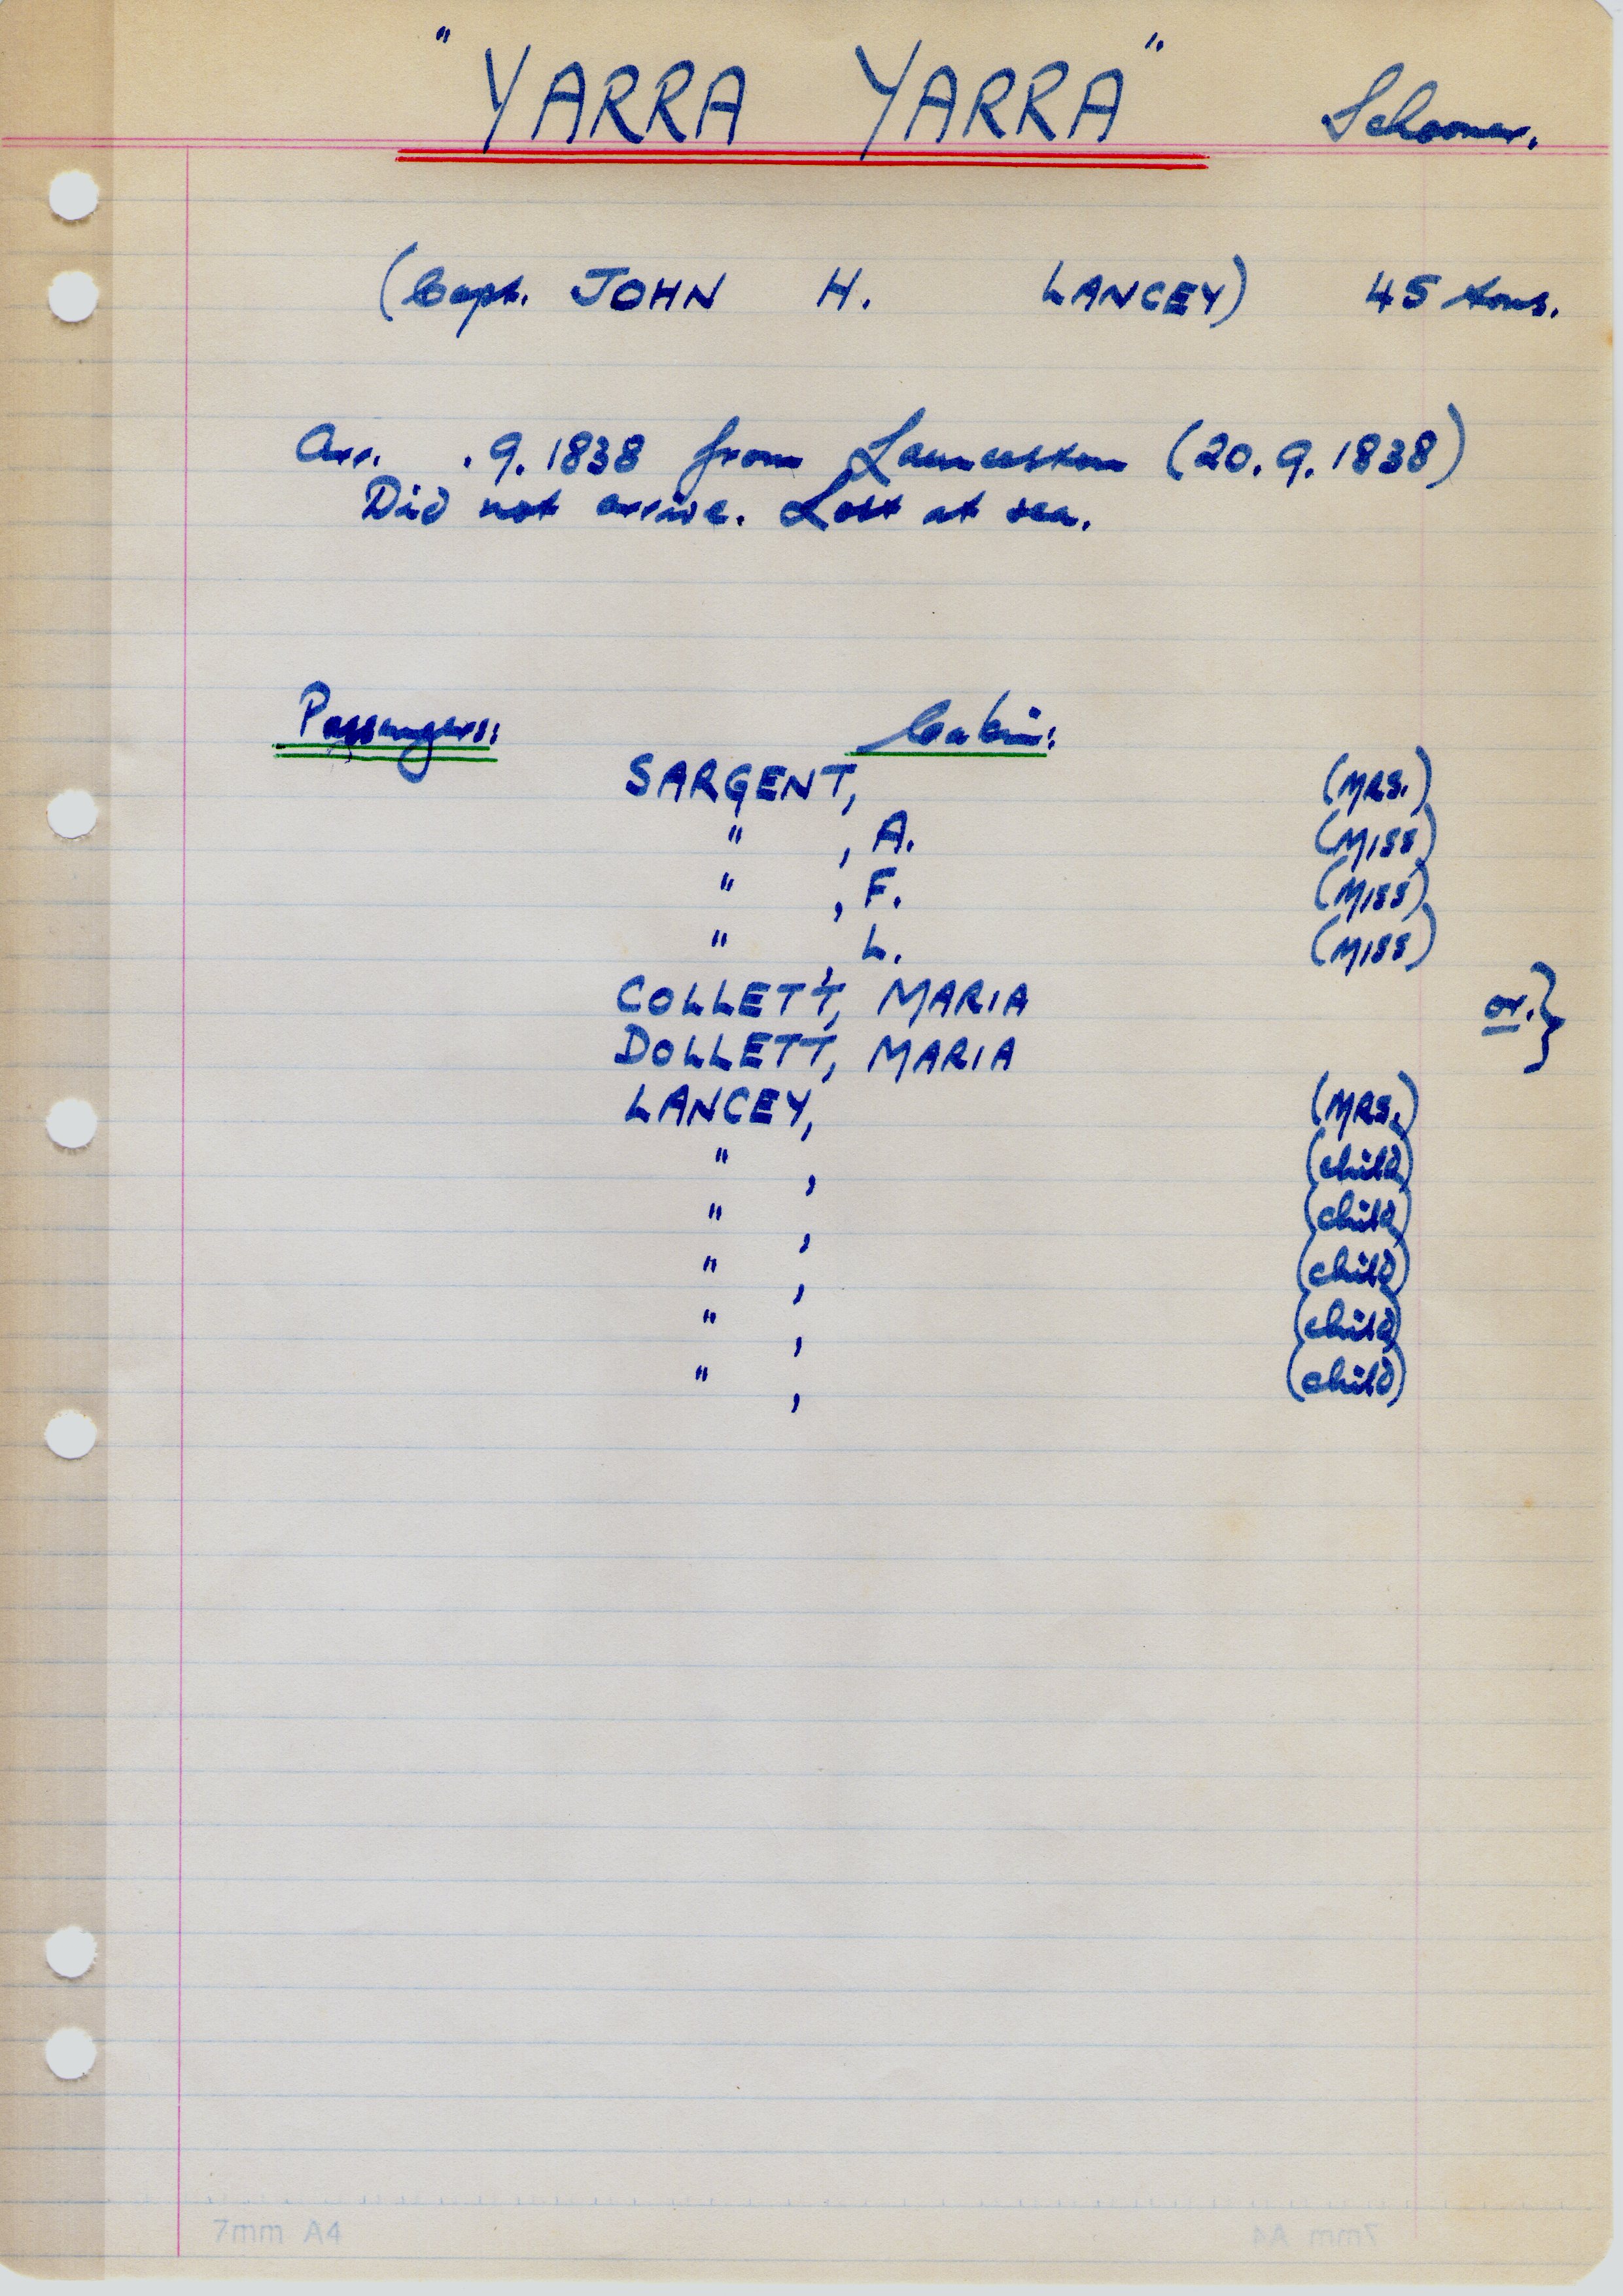 "YARRA YARRA" Schooner.
(Capt. JOHN H. LANCEY) 45 tons.
Arr. .9.1838 from Launceston (20.9.1838)
Did not arrive. Lost at sea.
Passengers: Cabin:
SARGENT, (MRS.)
" , A. (MISS)
" , F. (MISS)
" , L. (MISS)
COLLETT, MARIA or. }
DOLLETT, MARIA
LANCEY, (MRS.)
" , (child)
" , (child)
" , (child)
" , (child)
" , (child)
7mm A4
7mm A4